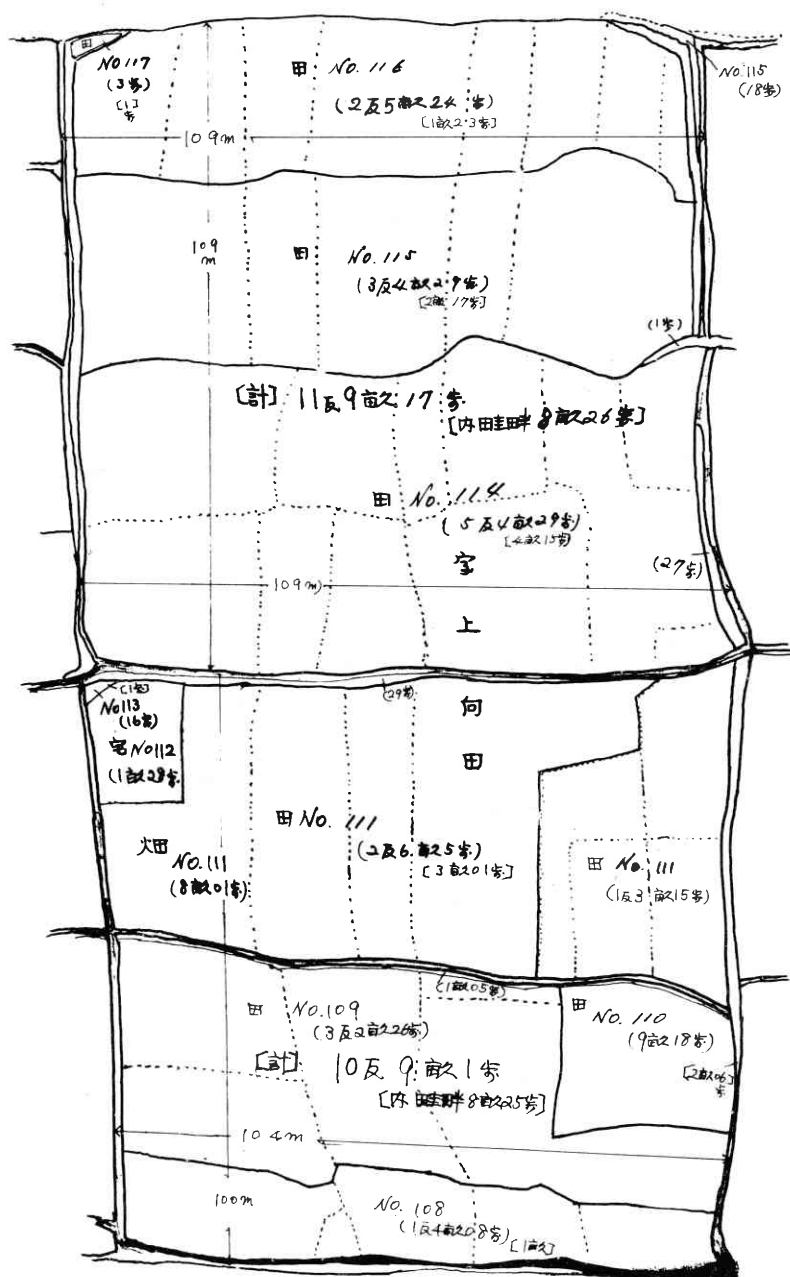 田
No.117
(3歩)
[1]
歩
田 No.116
(2反5畝24歩)
[1畝23歩]
No.115
(18歩)
109m
109
m
田 No.115
(3反4畝29歩)
[2畝17歩]
(1歩)
[計] 11反9畝17歩
[内畦畔8畝26歩]
田 No.114
(5反4畝29歩)
[4畝15歩]
(27歩)
109m
上
向
田
[1歩]
No113
(16歩)
宅No112
(1畝28歩)
(29歩)
田 No.111
(2反6畝5歩)
[3畝01歩]
畑
No.111
(8畝01歩)
田 No.111
(1反3畝15歩)
(1畝05歩)
田 No.109
(3反2畝26歩)
田
No.110
(9畝18歩)
[2畝06]
歩
[計] 10反9畝1歩
[内畦畔8畝25歩]
104m
100m
No.108
(1反4畝08歩)
[1畝]